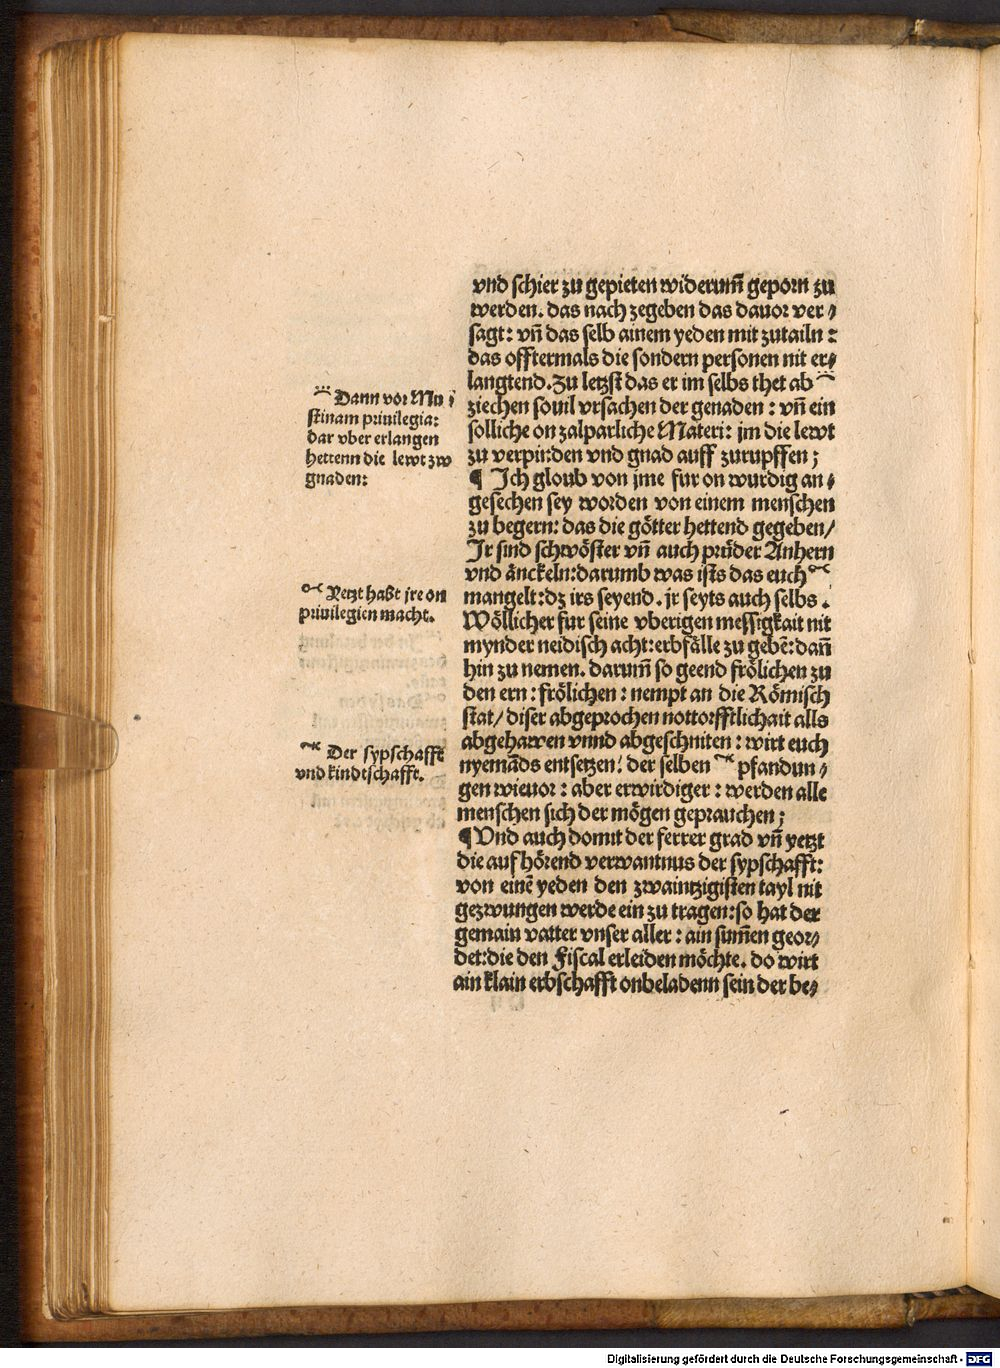 vnd schier zu gepieten widerum̃ geporn zu
werden. das nach zegeben das dauor ver⸗
sagt: vñ das selb ainem yeden mit zutailn:
das offtermals die sondern personen nit er⸗
langtend. Zu letzst das er im selbs thet ab
ziechen souil vrsachen der genaden: vñ ein
solliche on zalparliche Materi: jm die lewt
zu verpinden vnd gnad auff zurupffen;
¶ Ich gloub von jme fur on wurdig an⸗
gesechen sey worden von einem menschen
zu begern: das die götter hettend gegeben/
Ir sind schwöster vñ auch prüder Anhern
vnd änckeln: darumb was ists das euch
mangelt: dz irs seyend. jr seyts auch selbs.
Wöllicher fur seine vberigen messigkait nit
mynder neidisch acht: erbfälle zu gebẽ: dañ
hin zu nemen. darum̃ so geend frölichen zu
den ern: frölichen: nempt an die Römisch
stat/ diser abgeprochen nottorfftlichait alls
abgehawen vnnd abgeschniten: wirt euch
nyemãds entsetzen. der selben pfandun⸗
gen wieuor: aber erwirdiger: werden alle
menschen sich der mögen geprauchen;
¶ Vnd auch domit der ferrer grad vñ yetzt
die auf hörend verwantnus der sypschafft:
von einẽ yeden den zwaintzigisten tayl nit
gezwungen werde ein zu tragen: so hat der
gemain vatter vnser aller: ain sum̃en geor⸗
det: die den Fiscal erleiden möchte. do wirt
ain klain erbschafft onbeladenn sein der be⸗
Dann vor Mu⸗
stinam priuilegia:
dar vber erlangen
hettenn die lewt zw
gnaden:
Yetzt haßt jre on
priuilegien macht.
Der sypschafft
vnd kindtschafft.
Digitalisierung gefördert durch die Deutsche Forschungsgemeinschaft - DFG